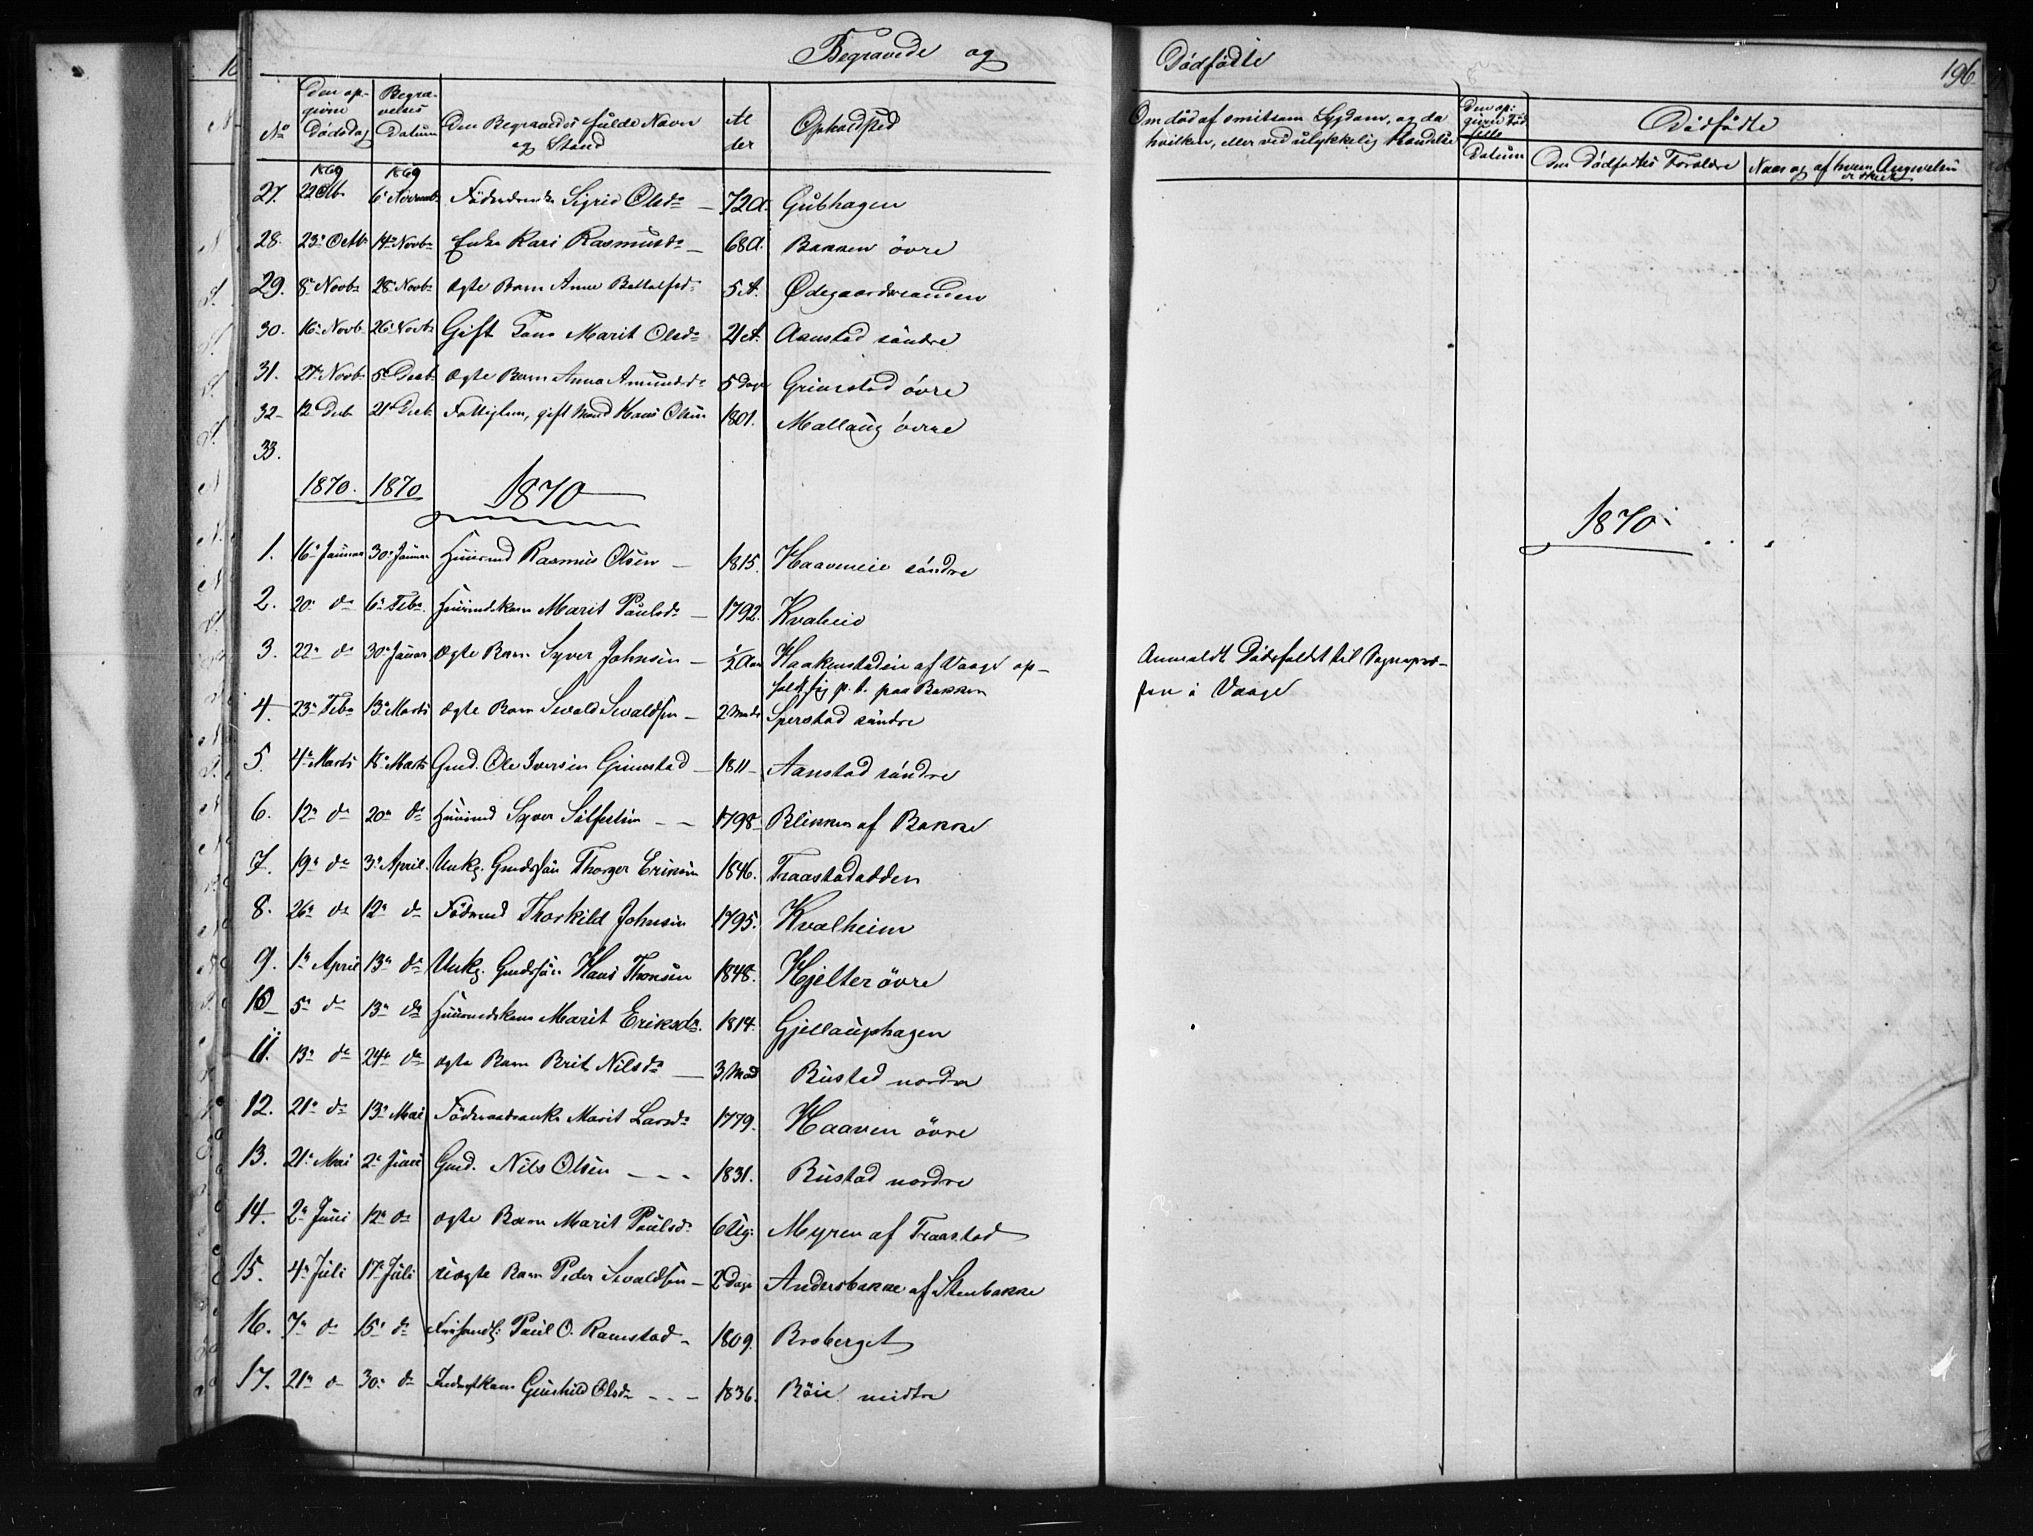 Begravede og Dødfødte 196
No
Den op-givne Dødsdag
Begra-velses Datum
Den Begravedes fulde Navn og Stand
Al der
Opholdsted
Om død af smitsom Sygdom, og da hvilken, eller ved ulykkelig Hændelse
Datum
Dødfødte
Den Dødfødtes Forældre
Naar og af hvem Angivelsen er skeet
1869 1869
27. 22 Octb. 6te Novemb. Föderaadsenke Sigrid Olsdr 72 A. Gubhagen
28. 23de Octb. 14de Novbr Enke Kari Rasmusdr 68 A. Bakken övre
29. 8de Novbr 28de Novbr Ægte Barn Anne 5 A. Ødegaards
30. 16de Novb. 26de Novb. Gift Kone Marit Olsdr 21 A. Aanstad söndre
31. 27de Novb. 5te Decb. Ægte Barn Anna Amundsdr 5 Dage Grimstad övre
32 12 Decb 21de Decb. Fattiglem, gift Mand Hans Olsen 1801. Mallaug övre
33.
1870. 1870 1870 1870.
1. 16de Januar 30te Januar Huusmd Rasmus Olsen 1815. söndre
2. 20de do 6te Febr. Huusmdskone Marit Paulsdr 1792. Kvaleie
3. 22de do 30te Januar Ægte Barn Syver Johnsen 1/2 Aar Haakenstadeie af Vaage op-holdt sig p. t. paa Bakken
Anmeldt Dødsfaldet til Sognepræ-sten i Vaage
4. 23de Febr 13de Marts Ægte Barn Sevald Sevaldsen 2 Mndr Sperstad söndre
5. 4de Marts 18de Marts Gmd. Ole Iversen Grimstad 1811 Aanstad söndre
6. 12te do 20de do Huusmd Syver Sylfestsen 1798 Blikken af Bakke
7. 19de do 3de April. Unkg. Gmdssön Thorger Eriksen 1846. Traastadødden
8. 26de do 12te do Födrmd Thorkild Johnsen 1795. Kvalheim
9. 1ste April 13de do Unkg. Gmdssön Hans Thomsen 1848. Hjelter övre
10 5te do 13de do Huusmdskone Marit Eriksdr. 1814. Gjellaugshagen
11. 13de do 24de do Ægte Barn Brit Nilsdr 3 Mndr Bustad nordre
12. 21de do 13de Mai Föderaadsenke Marit Larsdr 1779. Haaven övre
13. 21de Mai 2den Juni Gmd. Nils Olsen 1831. Bustad nordre
14. 2den Juni 12te do Ægte Barn Marit Paulsdr 6 Ug. Myren af Traastad
15. 4de Juli 17de Juli Uægte Barn Peder Sevaldsen 2 Dage Andersbakke af Stenbakke
16. 7de do 15de do Paul O. Ramstad 1809. Broberget
17. 21de do 30te do Gunhild Olsdr 1836. Böie midtre